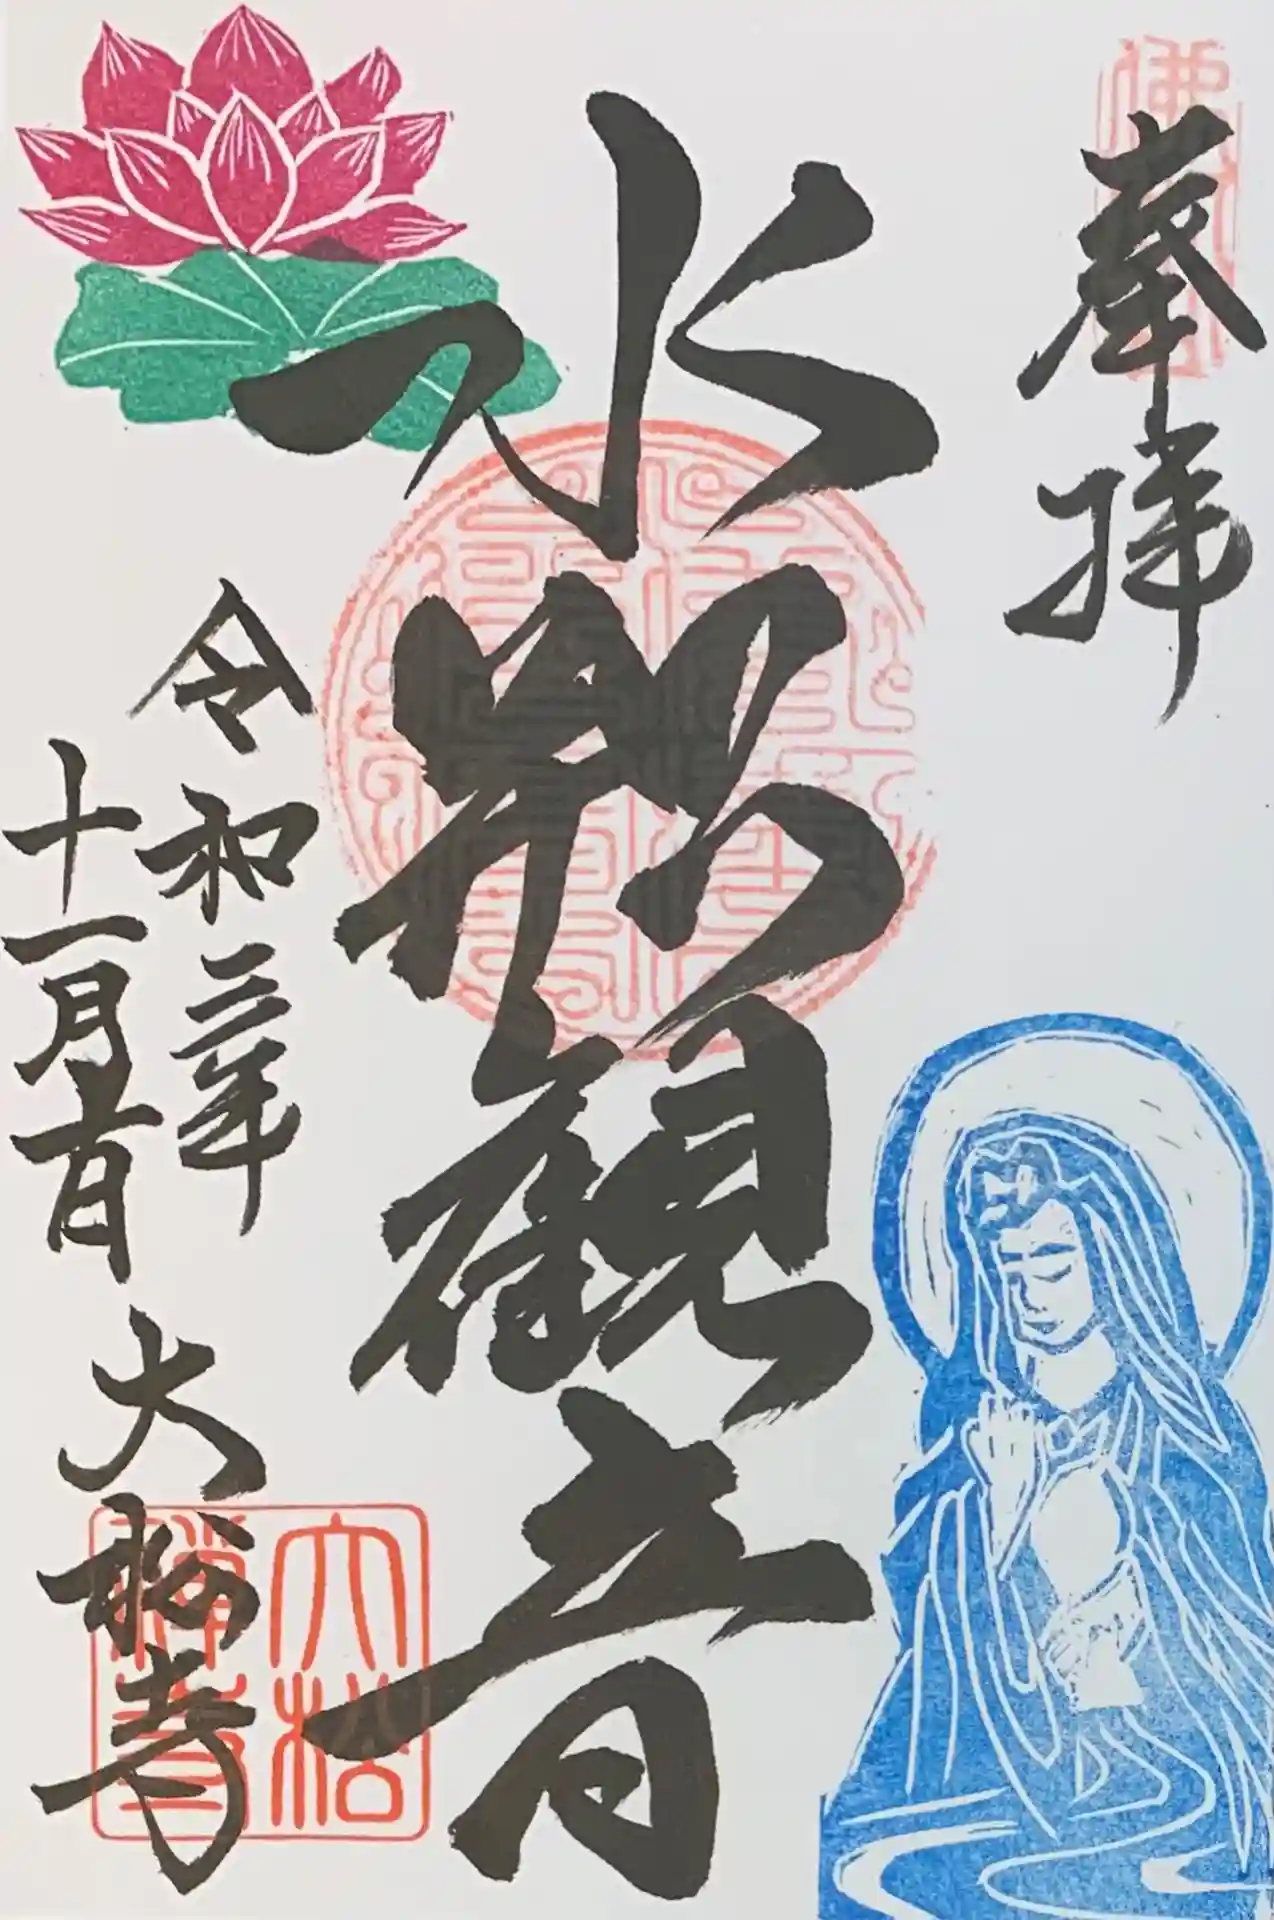 奉拝
水瓶観音
令和三年
十一月吉日
大松寺
大松
禅寺